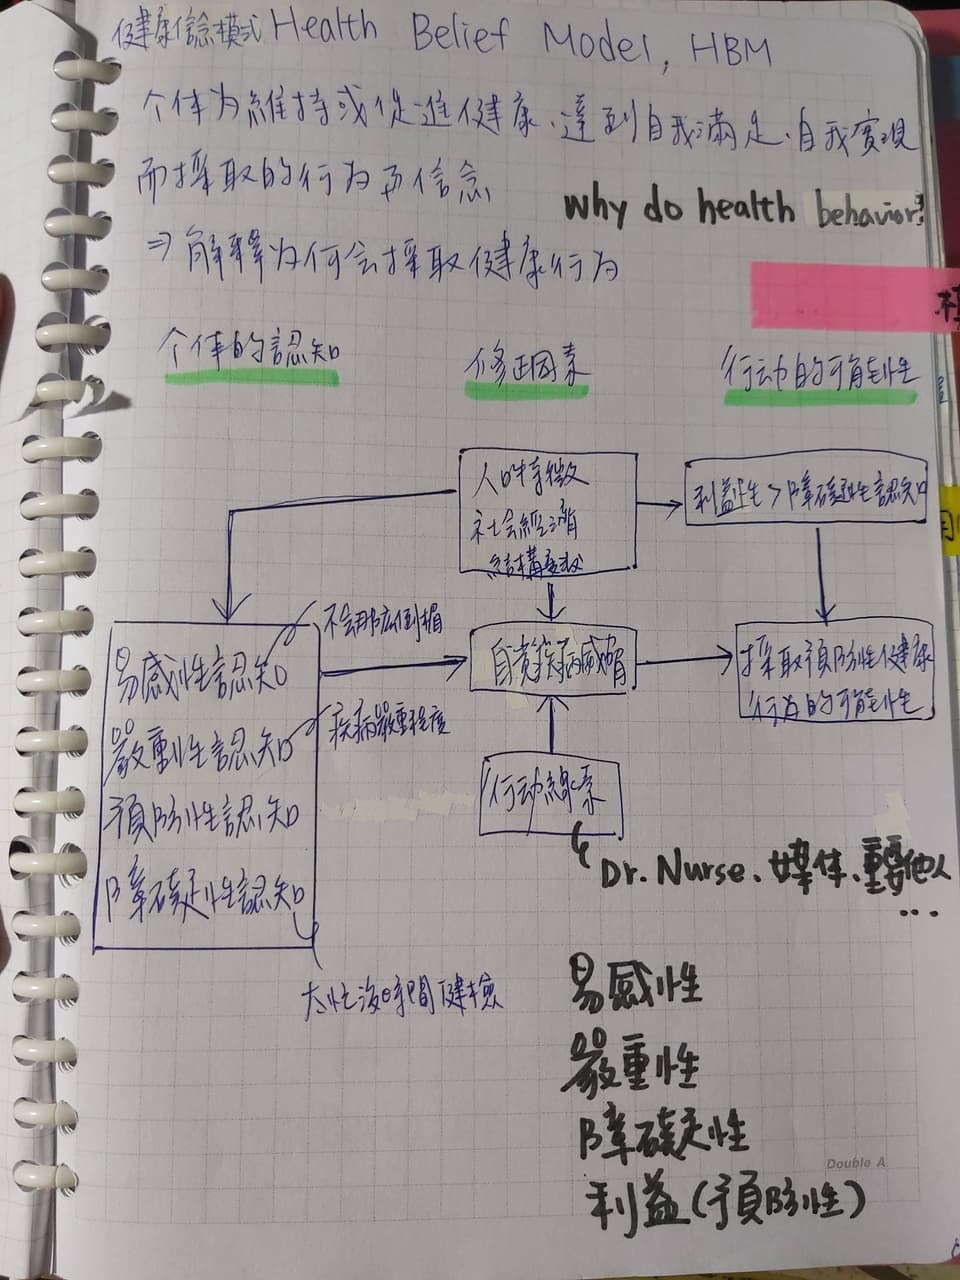 健康信念模式 Health Belief Model, HBM
个体为維持或促進健康、達到自我滿足、自我實現
而採取的行为与信念
why do health behavior?
⇒ 解釋为何会採取健康行为
个体的認知
修正因素
行动的可能性
人口特徵
社会經濟
結構變數
利益性>障礙性認知
易感性認知
不会那麼倒楣
嚴重性認知
疾病嚴重程度
預防性認知
障礙性認知
太忙沒時間健檢
自覺疾病威脅
採取預防性健康
行为的可能性
行动線索
Dr. Nurse、媒体、重要他人
...
易感性
嚴重性
障礙性
利益(預防性)
Double A